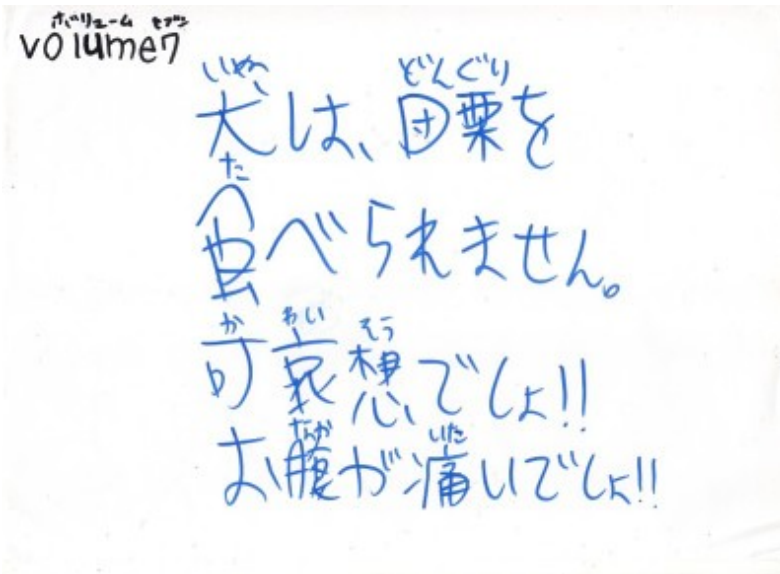 ボリューム セブン
volume7
いぬ どんぐり
犬は、団栗を
た
食べられません。
か わい そう
可哀想でしょ!!
なか いた
お腹が痛いでしょ!!